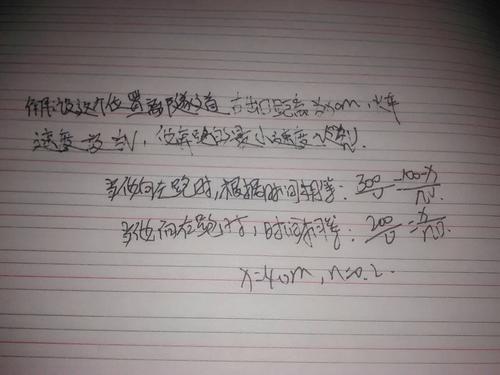 解:设这个位置离隧道右出口距离为xm,火车
速度为V,他奔跑的最小速度nv.
当他向左跑时,根据时间相等:300/v=100-x/nv.
当他向右跑时,时间相等:200/v=x/nv.
x=40m,n=0.2.